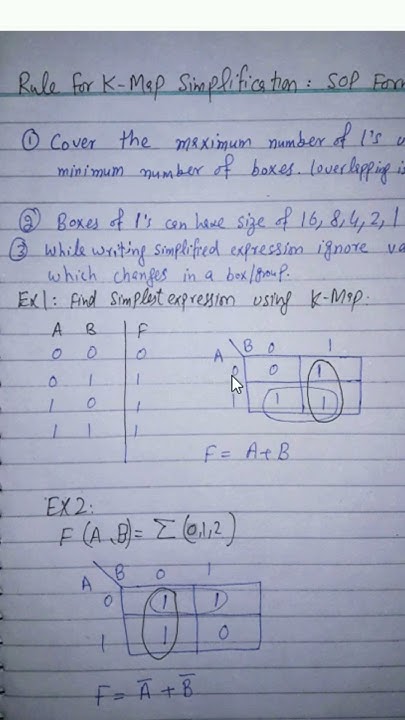 Rule for K-Map Simplification : SOP Form
① Cover the maximum number of 1's
minimum number of boxes. (overlapping is
② Boxes of 1's can have size of 16, 8, 4, 2, 1
③ while writing simplified expression ignore va
which changes in a box/group.
Ex1: Find simplest expression using K-Map.
A B F
0 0 0
0 1 1
1 0 1
1 1 1
A B 0 1
0 0 1
1 1 1
F = A+B
EX2:
F (A,B) = Σ (0,1,2)
A B 0 1
0 1 1
1 1 0
F = A̅ + B̅